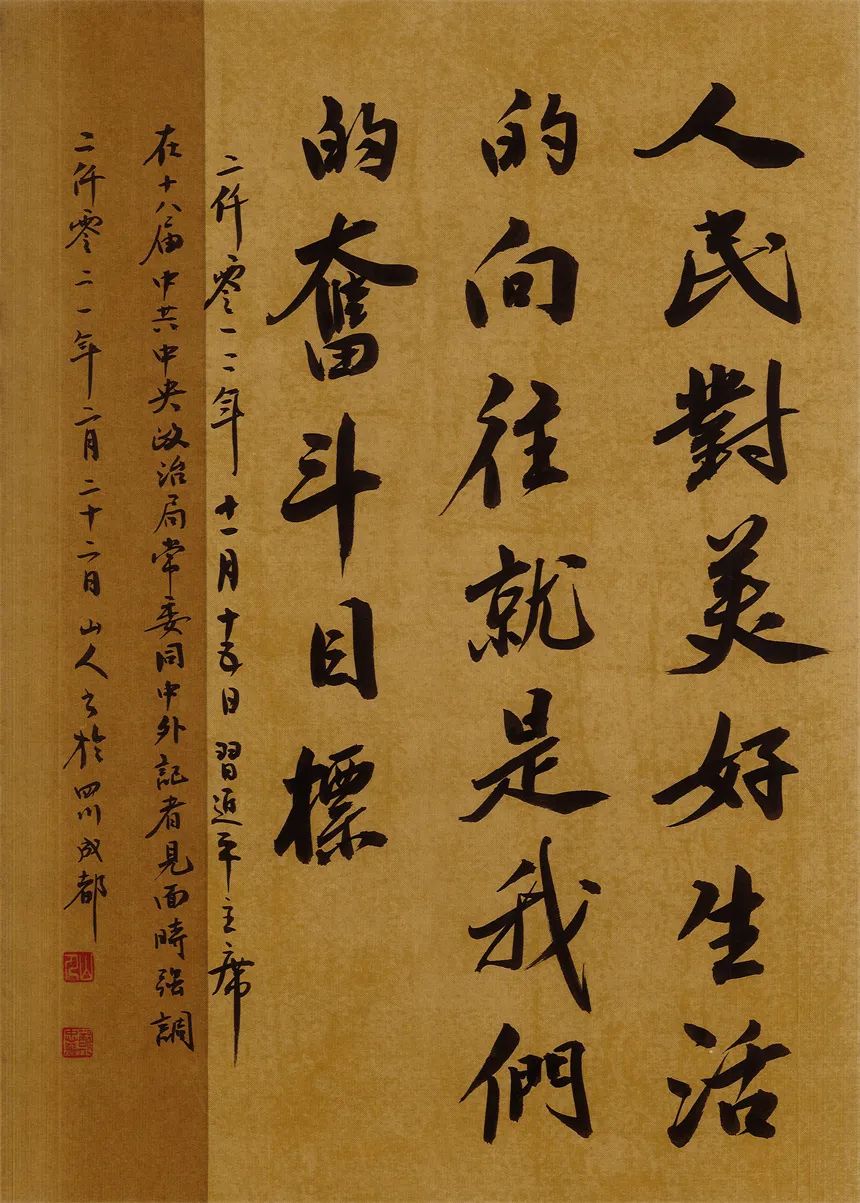 人民對美好生活
的向往就是我們
的奮斗目標
二仟零一二年十一月十五日習近平主席
在十八届中共中央政治局常委同中外記者見面時强調
二仟零二一年二月二十二日山人书於四川成都